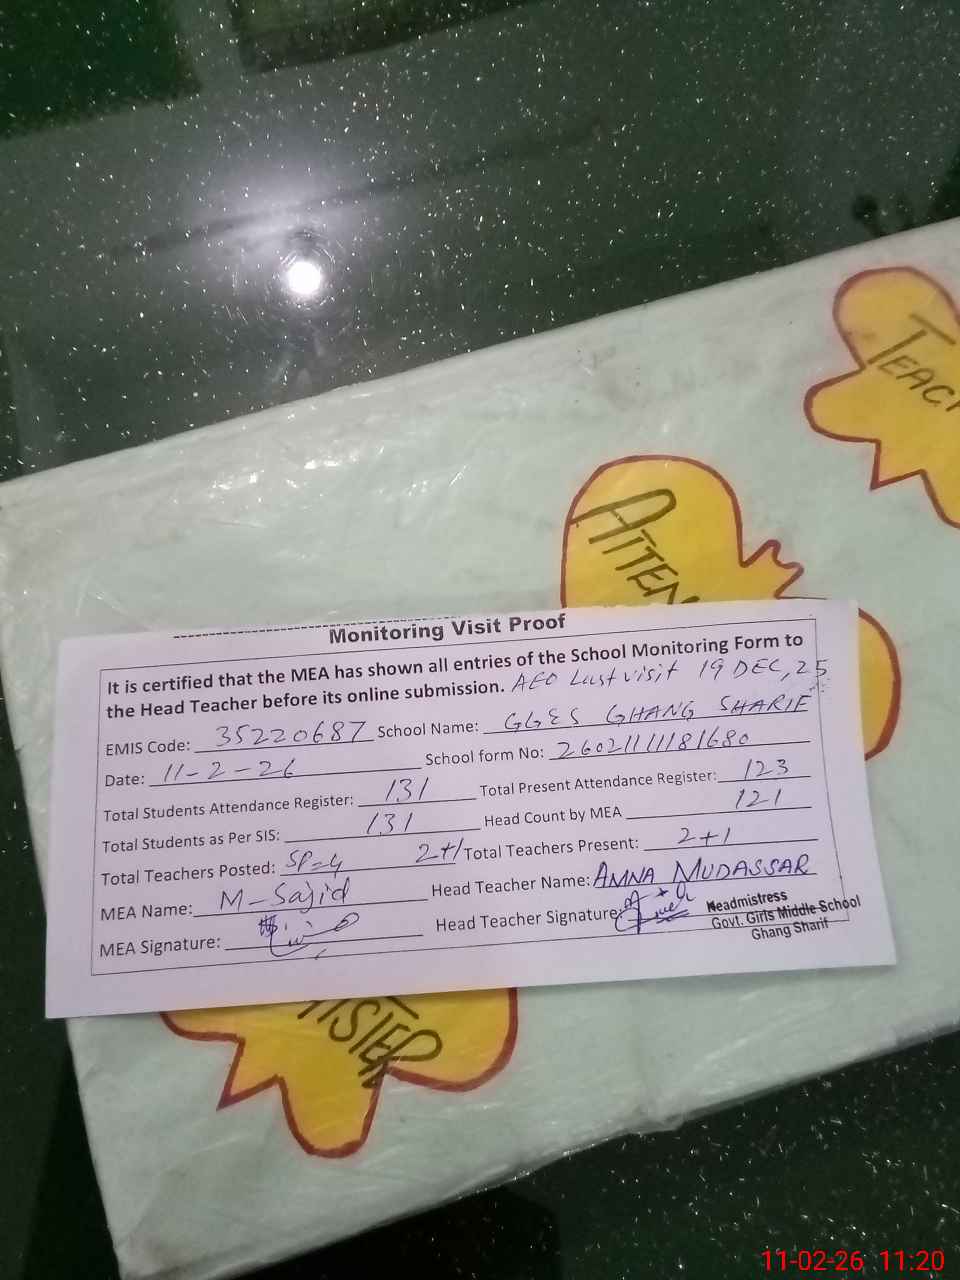 TEACH
ATTEN
Monitoring Visit Proof
It is certified that the MEA has shown all entries of the School Monitoring Form to
the Head Teacher before its online submission. AEO Last visit 19 DEC, 25
EMIS Code: 35220687 School Name: GGES GHANG SHARIF
Date: 11-2-26 School form No: 26021111181680
Total Students Attendance Register: 131 Total Present Attendance Register: 123
Total Students as Per SIS: 131 Head Count by MEA 121
Total Teachers Posted: SP=4 2+1 Total Teachers Present: 2+1
MEA Name: M-Sajid Head Teacher Name: AMNA MUDASSAR
MEA Signature: Head Teacher Signature:
Headmistress
Govt. Girls Middle School
Ghang Sharif
ISTER
11-02-26 11:20